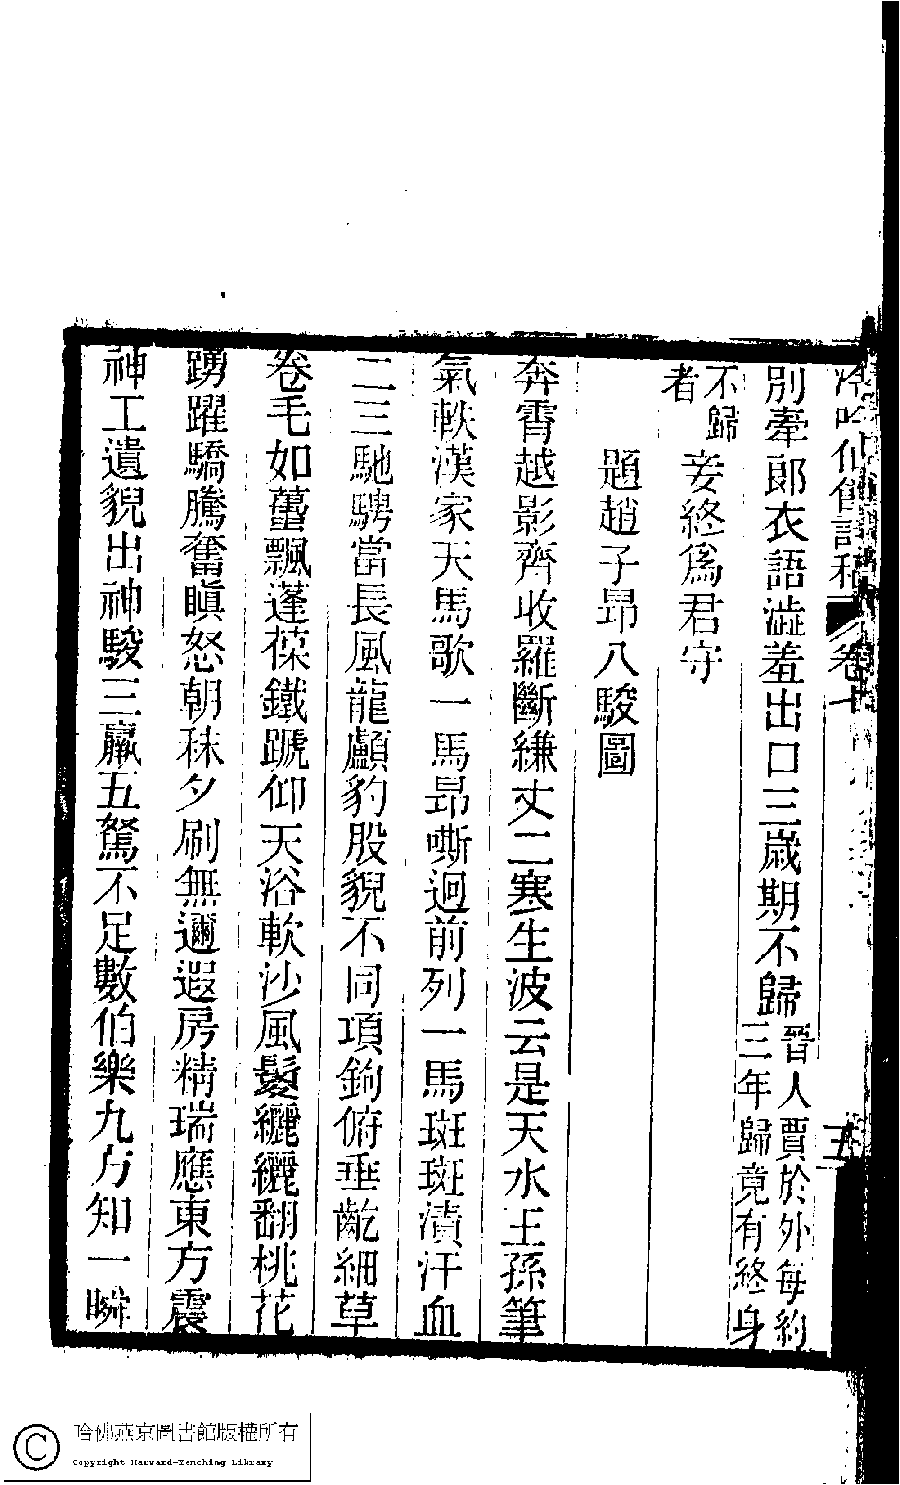 冷吟仙館詩稿 卷七 五
別牽郎衣語澁羞出口三歲期不歸
晉人賈於外每約
三年歸竟有終身
不歸
者
妾終爲君守
題趙子昂八駿圖
奔霄越影齊收羅斷縑丈二寒生波云是天水王孫筆
氣軼漢家天馬歌一馬昂嘶迴前列一馬斑斑漬汗血
二三馳騁當長風龍顱豹股貌不同項鉤俯垂齕細草
卷毛如蠆飄蓬葆鐵蹏仰天浴軟沙風髮纚纚翻桃花
踴躍驕騰奮瞋怒朝秣夕刷無邇遐房精瑞應東方震
神工遺貌出神駿三羸五駑不足數伯樂九方知一瞬
哈佛燕京圖書館版權所有
Copyright Harvard-Yenching Library